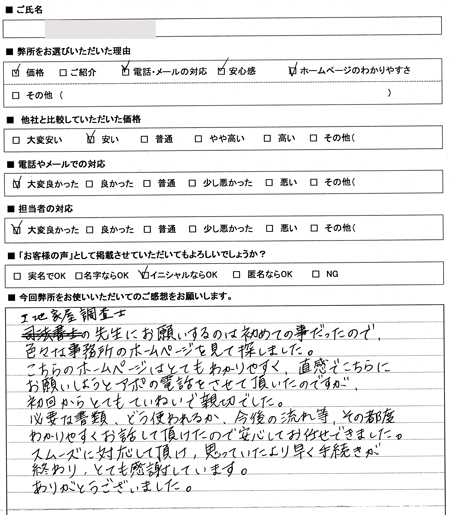 ■ ご氏名
■ 弊所をお選びいただいた理由
☑ 価格 □ ご紹介 ☑ 電話・メールの対応 ☑ 安心感 ☑ ホームページのわかりやすさ
□ その他 ( )
■ 他社と比較していただいた価格
□ 大変安い ☑ 安い □ 普通 □ やや高い □ 高い □ その他(
■ 電話やメールでの対応
☑ 大変良かった □ 良かった □ 普通 □ 少し悪かった □ 悪い □ その他(
■ 担当者の対応
☑ 大変良かった □ 良かった □ 普通 □ 少し悪かった □ 悪い □ その他(
■「お客様の声」として掲載させていただいてもよろしいでしょうか?
□ 実名でOK □ 名字ならOK ☑ イニシャルならOK □ 匿名ならOK □ NG
■ 今回弊所をお使いいただいてのご感想をお願いします。
土地家屋調査士
司法書士の先生にお願いするのは初めての事だったので、
色々な事務所のホームページを見て探しました。
こちらのホームページはとてもわかりやすく、直感でこちらに
お願いしようとアポの電話をさせて頂いたのですが、
初回からとてもていねいで親切でした。
必要な書類、どう使われるか、今後の流れ等、その都度
わかりやすくお話して頂けたので安心してお任せできました。
スムーズに対応して頂け、思っていたより早く手続きが
終わり、とても感謝しています。
ありがとうございました。